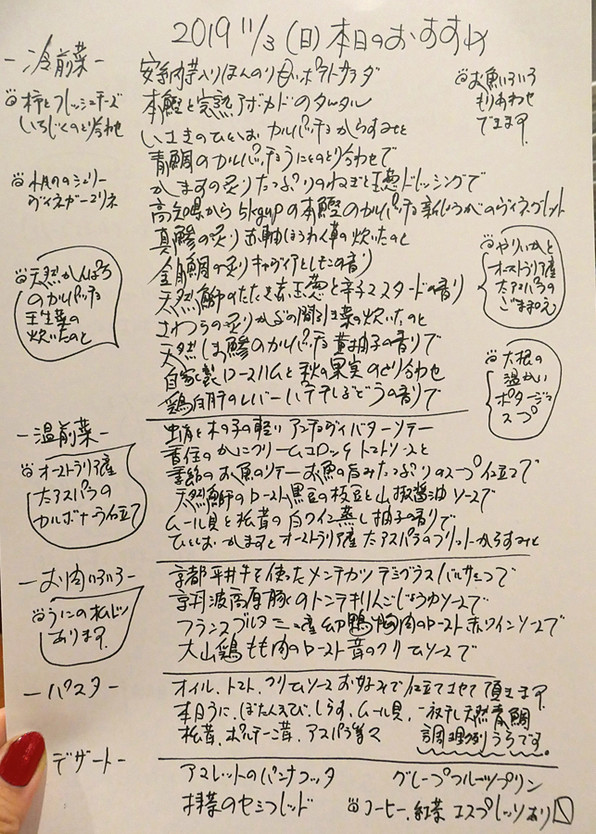 2019 11/3 (日) 本日のおすすめ
-冷前菜-
柿とフレッシュチーズ
いちじくのとり合わせ
木の子のシェリー
ヴィネガーマリネ
天然かんぱち
のカルパッチョ
壬生菜の
炊いたのと
お魚いろいろ
もりあわせ
できます。
安納芋入りほんのり甘いポテトサラダ
本鰹と完熟アボカドのタルタル
いさきのひといお カルパッチョ からすみと
青鯛のカルパッチョうにとのとり合わせで
かますの炙りたっぷりのねぎと玉葱ドレッシングで
高知県から 5kgupの本鰹のカルパッチョ 新しょうがのヴィネグレット
真鯵の炙り お軸ほうれん草の炊いたのと
金目鯛の炙りキャヴィアとしその香り
天然鰤のたたき赤玉葱と辛子マスタードの香り
さわらの炙り かぶの間引き菜の炊いたのと
天然しま鯵のカルパッチョ 黄柚子の香りで
自家製ロースハムと秋の果実のとり合わせ
鶏白肝のレバーパテ干しぶどうの香りで
やりいかと
オーストラリア産
大アスパラの
ごま和え
大根の
温かい
ポタージュ
スープ
-温前菜-
オーストラリア産
大アスパラの
カルボナーラ仕立て
蛸と木の子の軽い アンチョヴィバターソテー
香住のかにクリームコロッケ トマトソースと
季節のお魚のソテー お魚の旨みたっぷりのスープ仕立てで
天然鰤のロースト黒豆の枝豆と山椒醤油ソースで
ムール貝と松茸の白ワイン蒸し柚子の香りで
ひといお かますとオーストラリア産 大アスパラのフリット からすみと
-お肉いろいろ-
うにの
あります。
京都平井牛を使ったメンチカツ デミグラスバルサミコで
京丹波高原豚のトンテキりんごじょうゆソースで
フランスブルターニュ産 幼鴨胸肉のロースト赤ワインソースで
大山鶏もも肉のロースト茸のクリームソースで
-パスタ-
オイル. トマト. クリームソース お好みで仕立てさせて頂きます。
本日うに. ぼたんえび. しらす. ムール貝. 一夜干し天然青鯛
松茸. ポルチーニ茸. アスパラ等々
調理例うらです。
デザート-
アマレットのパンナコッタ
グレープフルーツプリン
抹茶のセミフレッド
コーヒー. 紅茶 エスプレッソあり